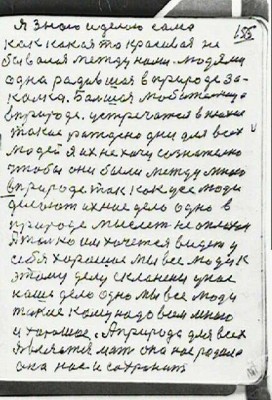 Я знаю и делаю сама
155
как какая то красивая не
бывалая между нами людями
одна радившая в природе за-
калка. Балшая любителница
природе. устречается в
такие ражденно дни для всех
людей я их не хочу сознателно
чтобы они были между мною
в природе так как усе люди
делают ихнее дело одно в
природе мыслет не
я толко им хочется видеть у
себя хорошее мы все люди к
этому делу склонены у нас
наше дело одно мы все люди
такие кому надо всем много
и хорошое. А природа для всех
является мать она нас родила
она нас и сохранит